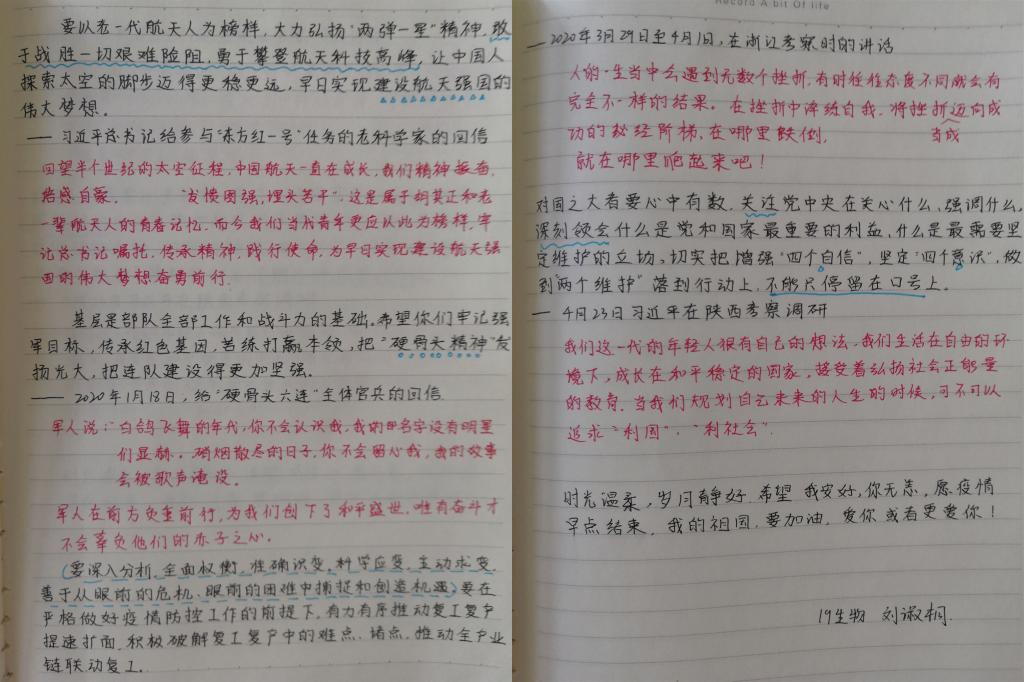 要以老一代航天人为榜样，大力弘扬"两弹一星"精神，敢
于战胜一切艰难险阻，勇于攀登航天科技高峰，让中国人
探索太空的脚步迈得更稳更远，早日实现建设航天强国的
伟大梦想。
——习近平总书记给参与"东方红一号"任务的老科学家的回信
回望半个世纪的太空征程，中国航天一直在成长，我们精神振奋，
倍感自豪。"发愤图强，埋头苦干"，这是属于胡其正和老
一辈航天人的青春记忆，而今我们当代青年更应以此为榜样，牢
记总书记嘱托，传承精神，践行使命，为早日实现建设航天强
国的伟大梦想奋勇前行。
基层是部队全部工作和战斗力的基础。希望你们牢记强
军目标，传承红色基因，苦练打赢本领，把"硬骨头精神"发
扬光大，把连队建设得更加坚强。
——2020年1月18日，给"硬骨头六连"全体官兵的回信
军人说："白鸽飞舞的年代，你不会认识我，我的名字没有明星
们显赫，硝烟散尽的日子，你不会留心我，我的故事
会被歌声淹没。
军人在前方负重前行，为我们创下了和平盛世，唯有奋斗才
不会辜负他们的赤子之心。
(要深入分析，全面权衡，准确识变，科学应变，主动求变，
善于从眼前的危机、眼前的困难中捕捉和创造机遇)要在
严格做好疫情防控工作的前提下，有力有序推动复工复产
提速扩面，积极破解复工复产中的难点、堵点，推动全产业
链联动复工。
Record A bit Of life
—2020年3月29日至4月1日，在浙江考察时的讲话
人的一生当中会遇到无数个挫折，有时往往态度不同就会有
完全不一样的结果。在挫折中淬练自我，将挫折迈向成
功的必经阶梯，在哪里跌倒，当成
就在哪里爬起来吧！
对国之大者要心中有数，关注党中央在关心什么、强调什么，
深刻领会什么是党和国家最重要的利益、什么是最需要坚
定维护的立场，切实把增强"四个自信"，坚定"四个意识"，做
到"两个维护"落到行动上，不能只停留在口号上。
— 4月23日习近平在陕西考察调研
我们这一代的年轻人很有自己的想法，我们生活在自由的环
境下，成长在和平稳定的国家，接受着弘扬社会正能量
的教育，当我们规划自己未来的人生的时候，可不可以
追求"利国"，"利社会"。
时光温柔，岁月静好 希望 我安好，你无恙，愿疫情
早点结束，我的祖国，要加油，爱你 或者更爱你！
19生物 刘淑桐.